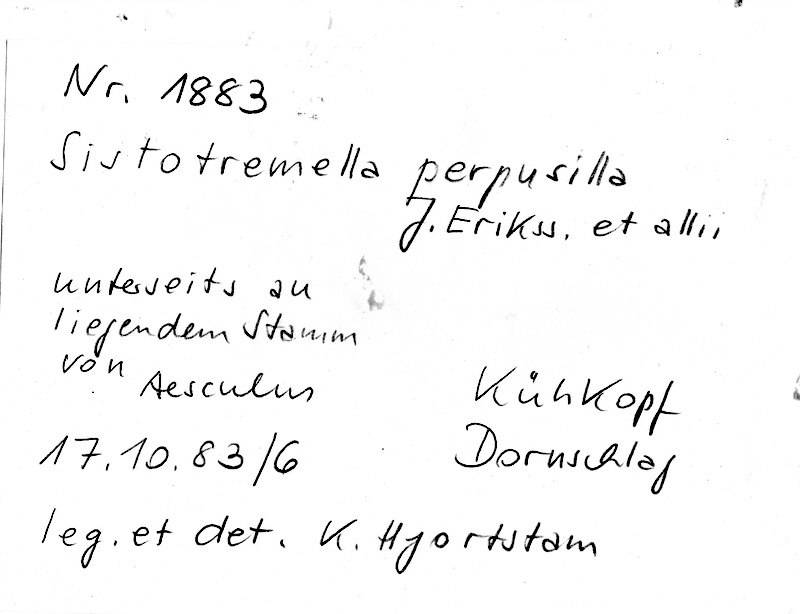 Nr. 1883
Sistotremella perpusilla
J. Erikss. et allii
unterseits an
liegendem Stamm
von Aesculus
Kühkopf
17.10.83/6
Dornschlag
leg. et det. K. Hjortstam